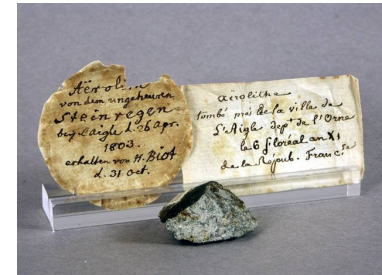 Aërolith
von dem ungeheuren
Steinregen
bey l'aigle d. 26 apr.
1803.
erhalten von H. Biot
d. 31 oct.
aërolithe
tombé près de la ville de
l'Aigle dept de l'Orne
le 6 floréal an XI
de la Répub. Francse